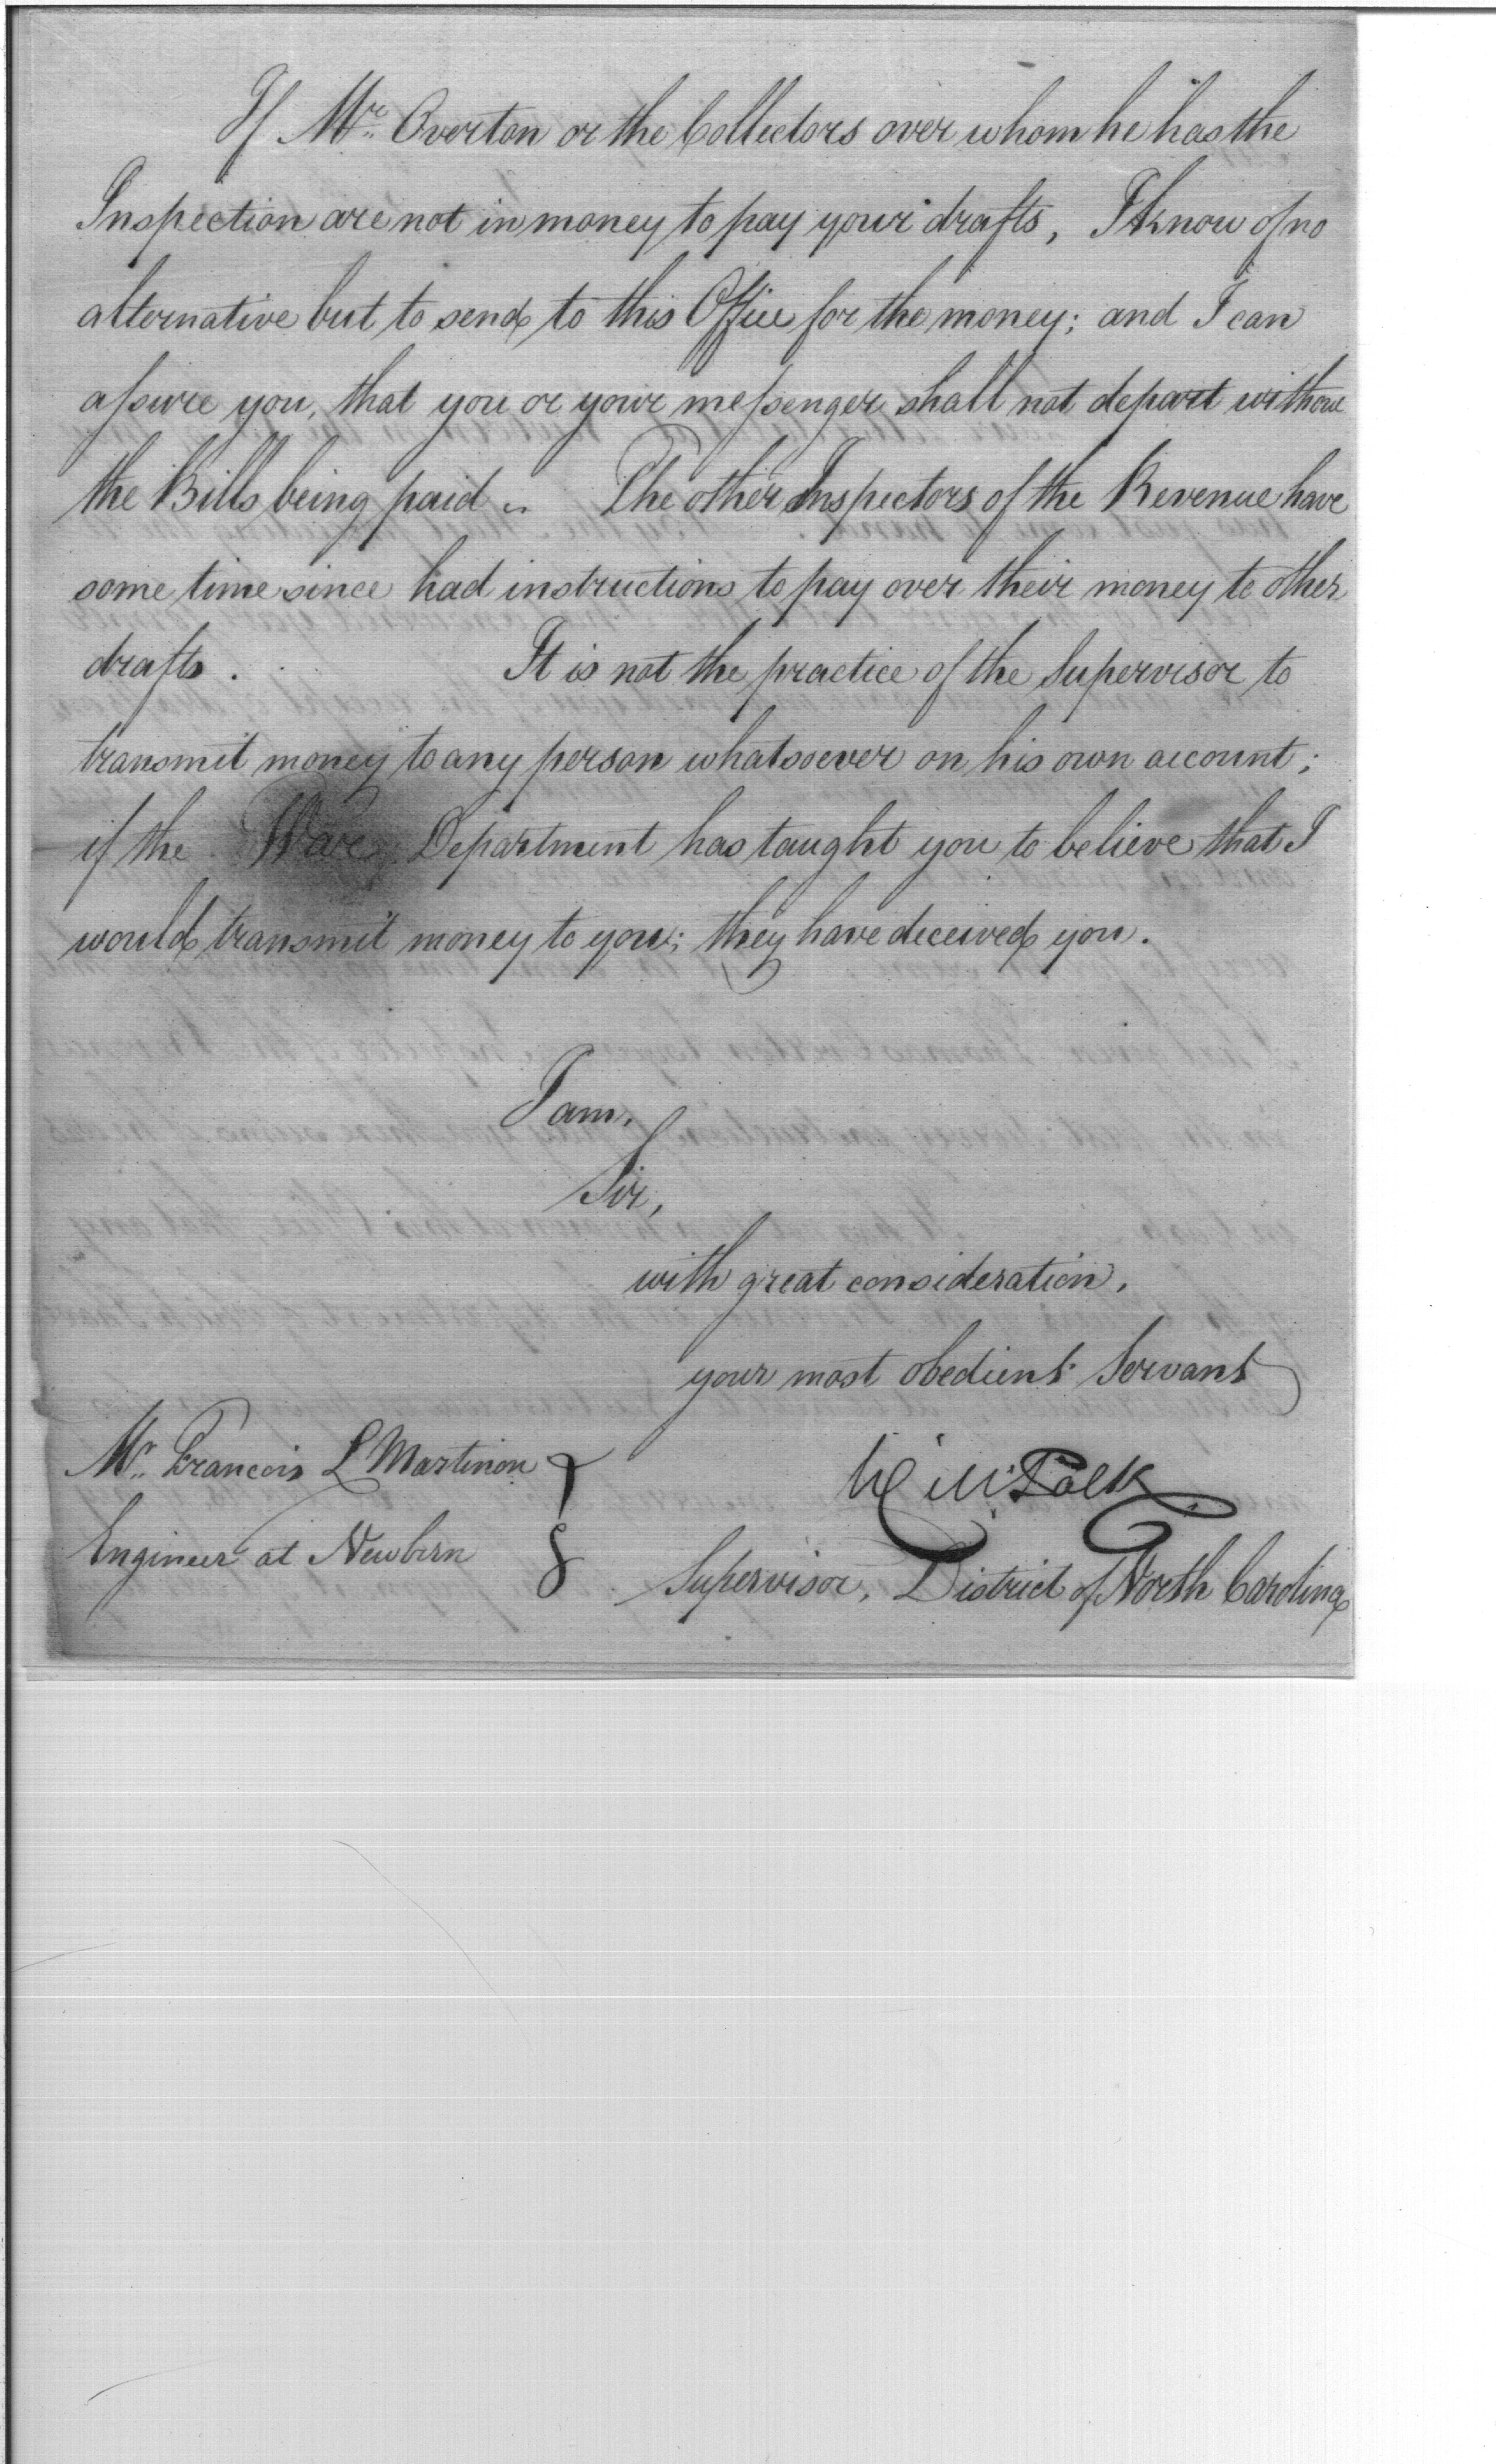 If Mr. Overton or the Collectors over whom he has the
Inspection are not in money to pay your drafts, I know of no
alternative but to send to this Office for the money; and I can
aſsure you, that you or your meſsenger shall not depart without
the Bills being paid. The other Inspectors of the Revenue have
some time since had instructions to pay over their money to other
drafts. It is not the practice of the Supervisor to
transmit money to any person whatsoever on his own account;
if the War Department has taught you to believe that I
would transmit money to you; they have deceived you.
I am,
Sir,
with great consideration,
your most obedient Servant
Mr. Francois L Martinon
Will Polk
Engineer at Newbern
Supervisor, District of North Carolina